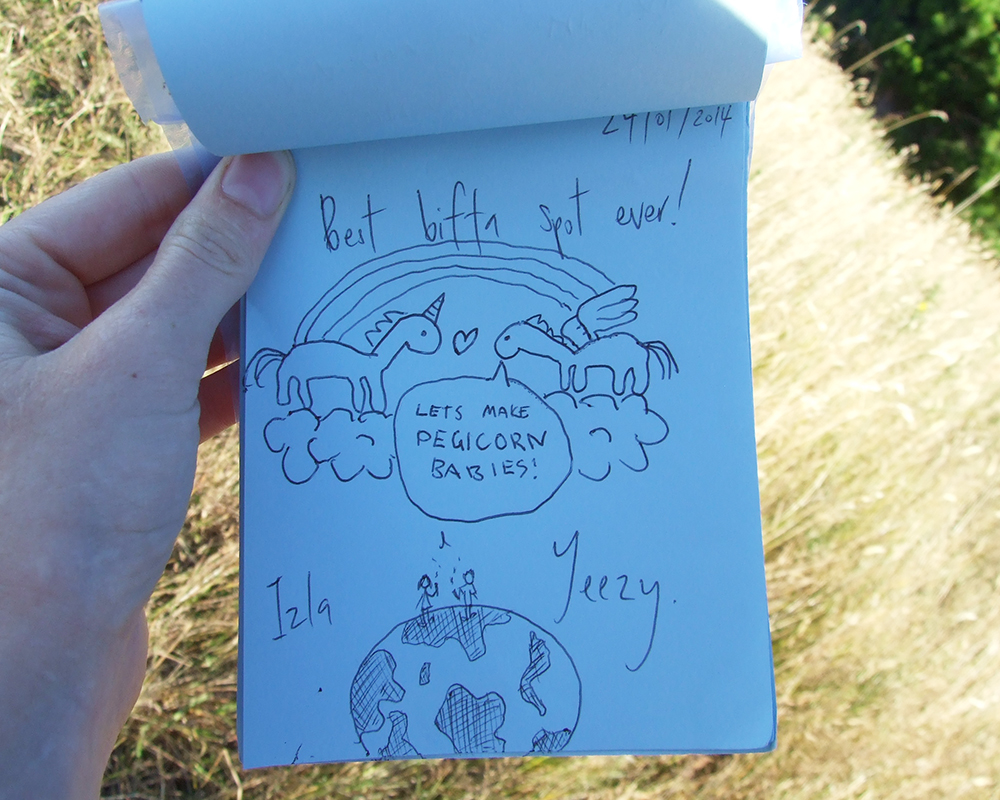 24/01/2014
Best bifta spot ever!
LETS MAKE
PEGICORN
BABIES!
Izla
Yeezy.